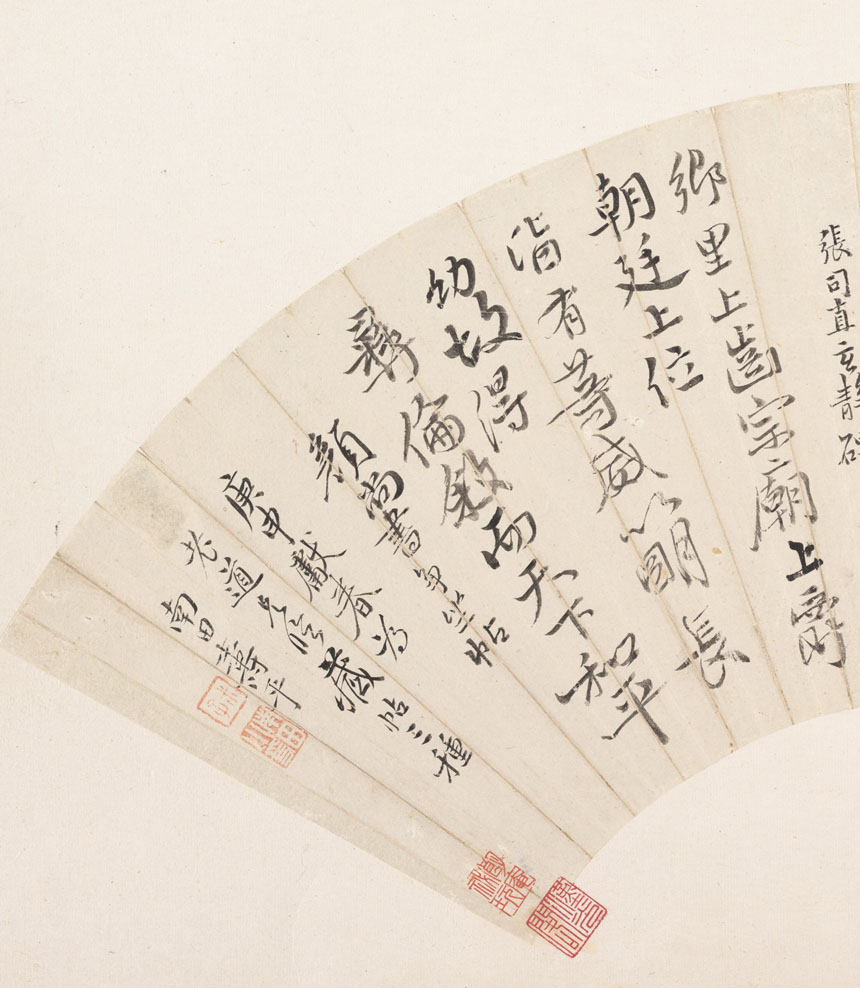 張司直玄靜碑
鄉里上齒宗廟上爵
朝廷上位
皆有等威以明長
幼故得
彝倫敘而天下和平
顏尚書爭坐帖
庚申獻春為
老道兄臨藏帖三種
南田壽平